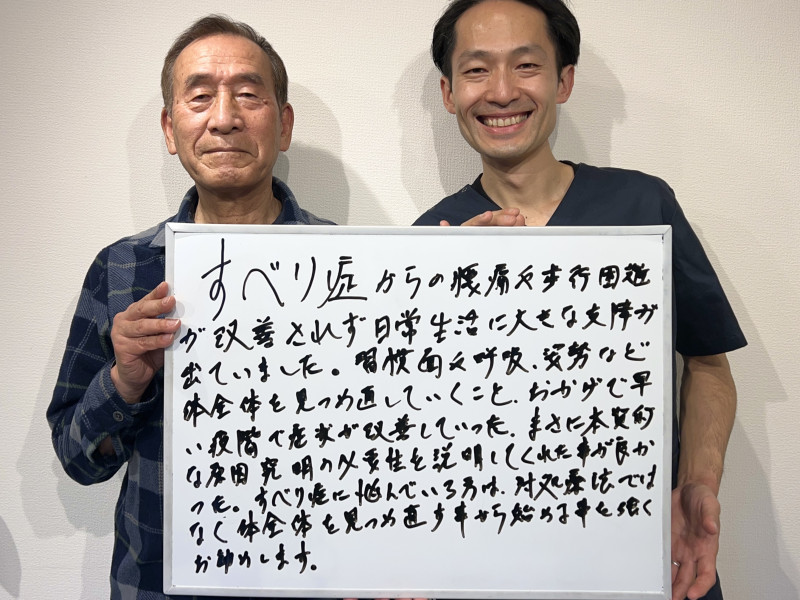 すべり症からの腰痛や歩行困難
が改善されず日常生活に大きな支障が
出ていました。習慣面や呼吸、姿勢など
体全体を見つめ直していくこと、おかげで早
い段階で症状が改善していった、まさに本質的
な原因究明の必要性を説明してくれた事が良か
った。すべり症に悩んでいる方は、対処療法では
なく体全体を見つめ直す事から始める事を強く
お勧めします。